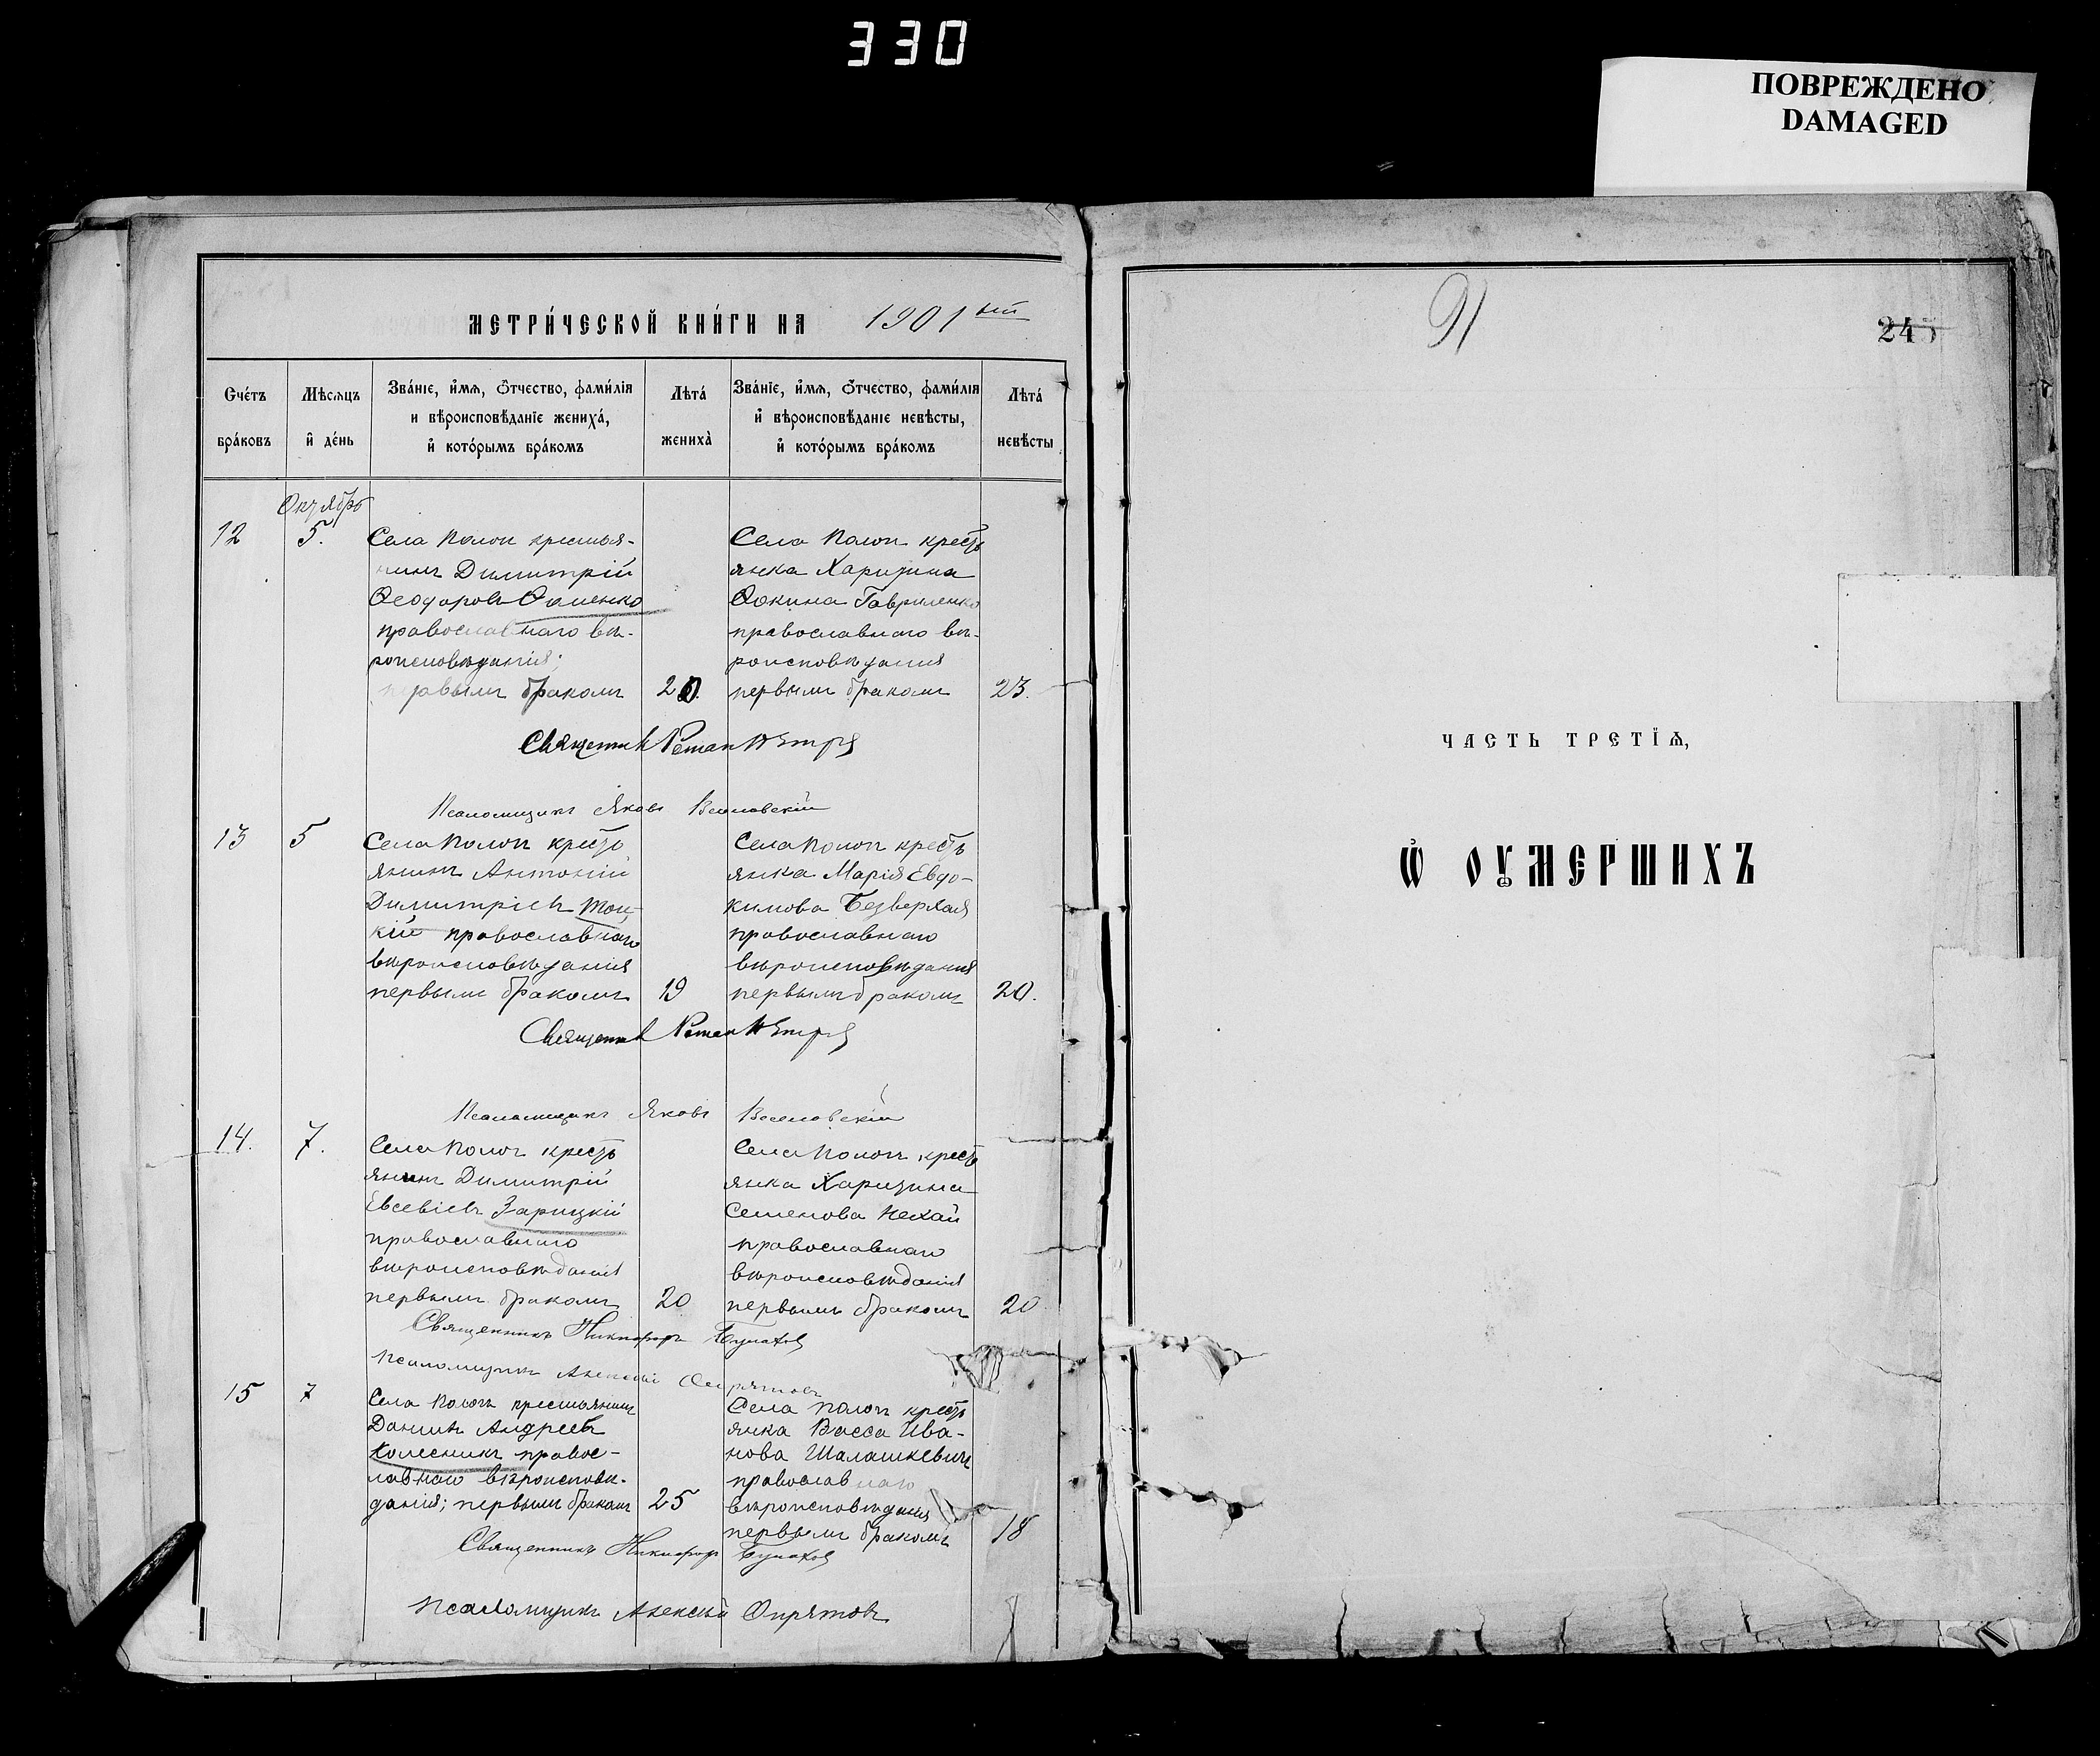 330
ПОВРЕЖДЕНО
DAMAGED
МЕТРИ́ЧЕСКОЙ КНИ́ГИ НА 1901ый
Сче́тъ бра́ковъ
Мѣ́сѧцъ и҆ де́нь
Зва́нїе, и҆́мѧ, Ѻ҆́тчество, фами́лїѧ
и вѣроисповѣ́данїе жениха́,
и҆ кото́рымъ бра́комъ
Лѣта́ жениха̀
Зва́нїе, и҆́мѧ, Ѻ҆́тчество, фами́лїѧ
и҆ вѣроисповѣ́данїе невѣ́сты,
и҆ кото́рымъ бра́комъ
Лѣта́ невѣ́сты
Октябрь
12 5.
Села Полог крестья-
нинъ Димитрій
Ѳеодоровъ
православнаго вѣ-
роисповѣданія;
первымъ бракомъ 20.
Села Полог кресть
янка Харитина
Ѳокина Гавриленко
православнаго вѣ-
роисповѣданія
первымъ бракомъ 23.
Священник Роман Петро
Псаломщикъ Яковъ
13 5
Села Полог кресть
янинъ Антоній
Димитріевъ Тоц
кій православнаго
вѣроисповѣданія
первымъ бракомъ 19
Села Полог кресть
янка Марія Евдо-
кимова Безверхая
православнаго
вѣроисповѣданія
первымъ бракомъ 20.
Священник Роман Петро
Псаломщикъ Яковъ
14. 7.
Села Полог кресть
янинъ Димитрій
Евсевіевъ Зарицкій
православнаго
вѣроисповѣданія
первымъ бракомъ 20
Села Полог кресть
янка Харитина
Семенова Нехай
православнаго
вѣроисповѣданія
первымъ бракомъ 20
Священникъ Никифоръ Булахов
Псаломщикъ Алексій Опрятовъ
15 7
Села Полог крестьянинъ
Даніилъ Андреевъ
Колесникъ правос-
лавнаго вѣроисповѣ-
данія; первымъ бракомъ 25
Села Полог кресть
янка Васса Ива-
нова Шалашкевичъ
православнаго
вѣроисповѣданія
первымъ бракомъ 18
Священникъ Никифор Булахов
Псаломщикъ Алексій Опрятовъ
91
245
ЧАСТЬ ТРЕТЇѦ,
Ѽ ОУМЕРШИХЪ